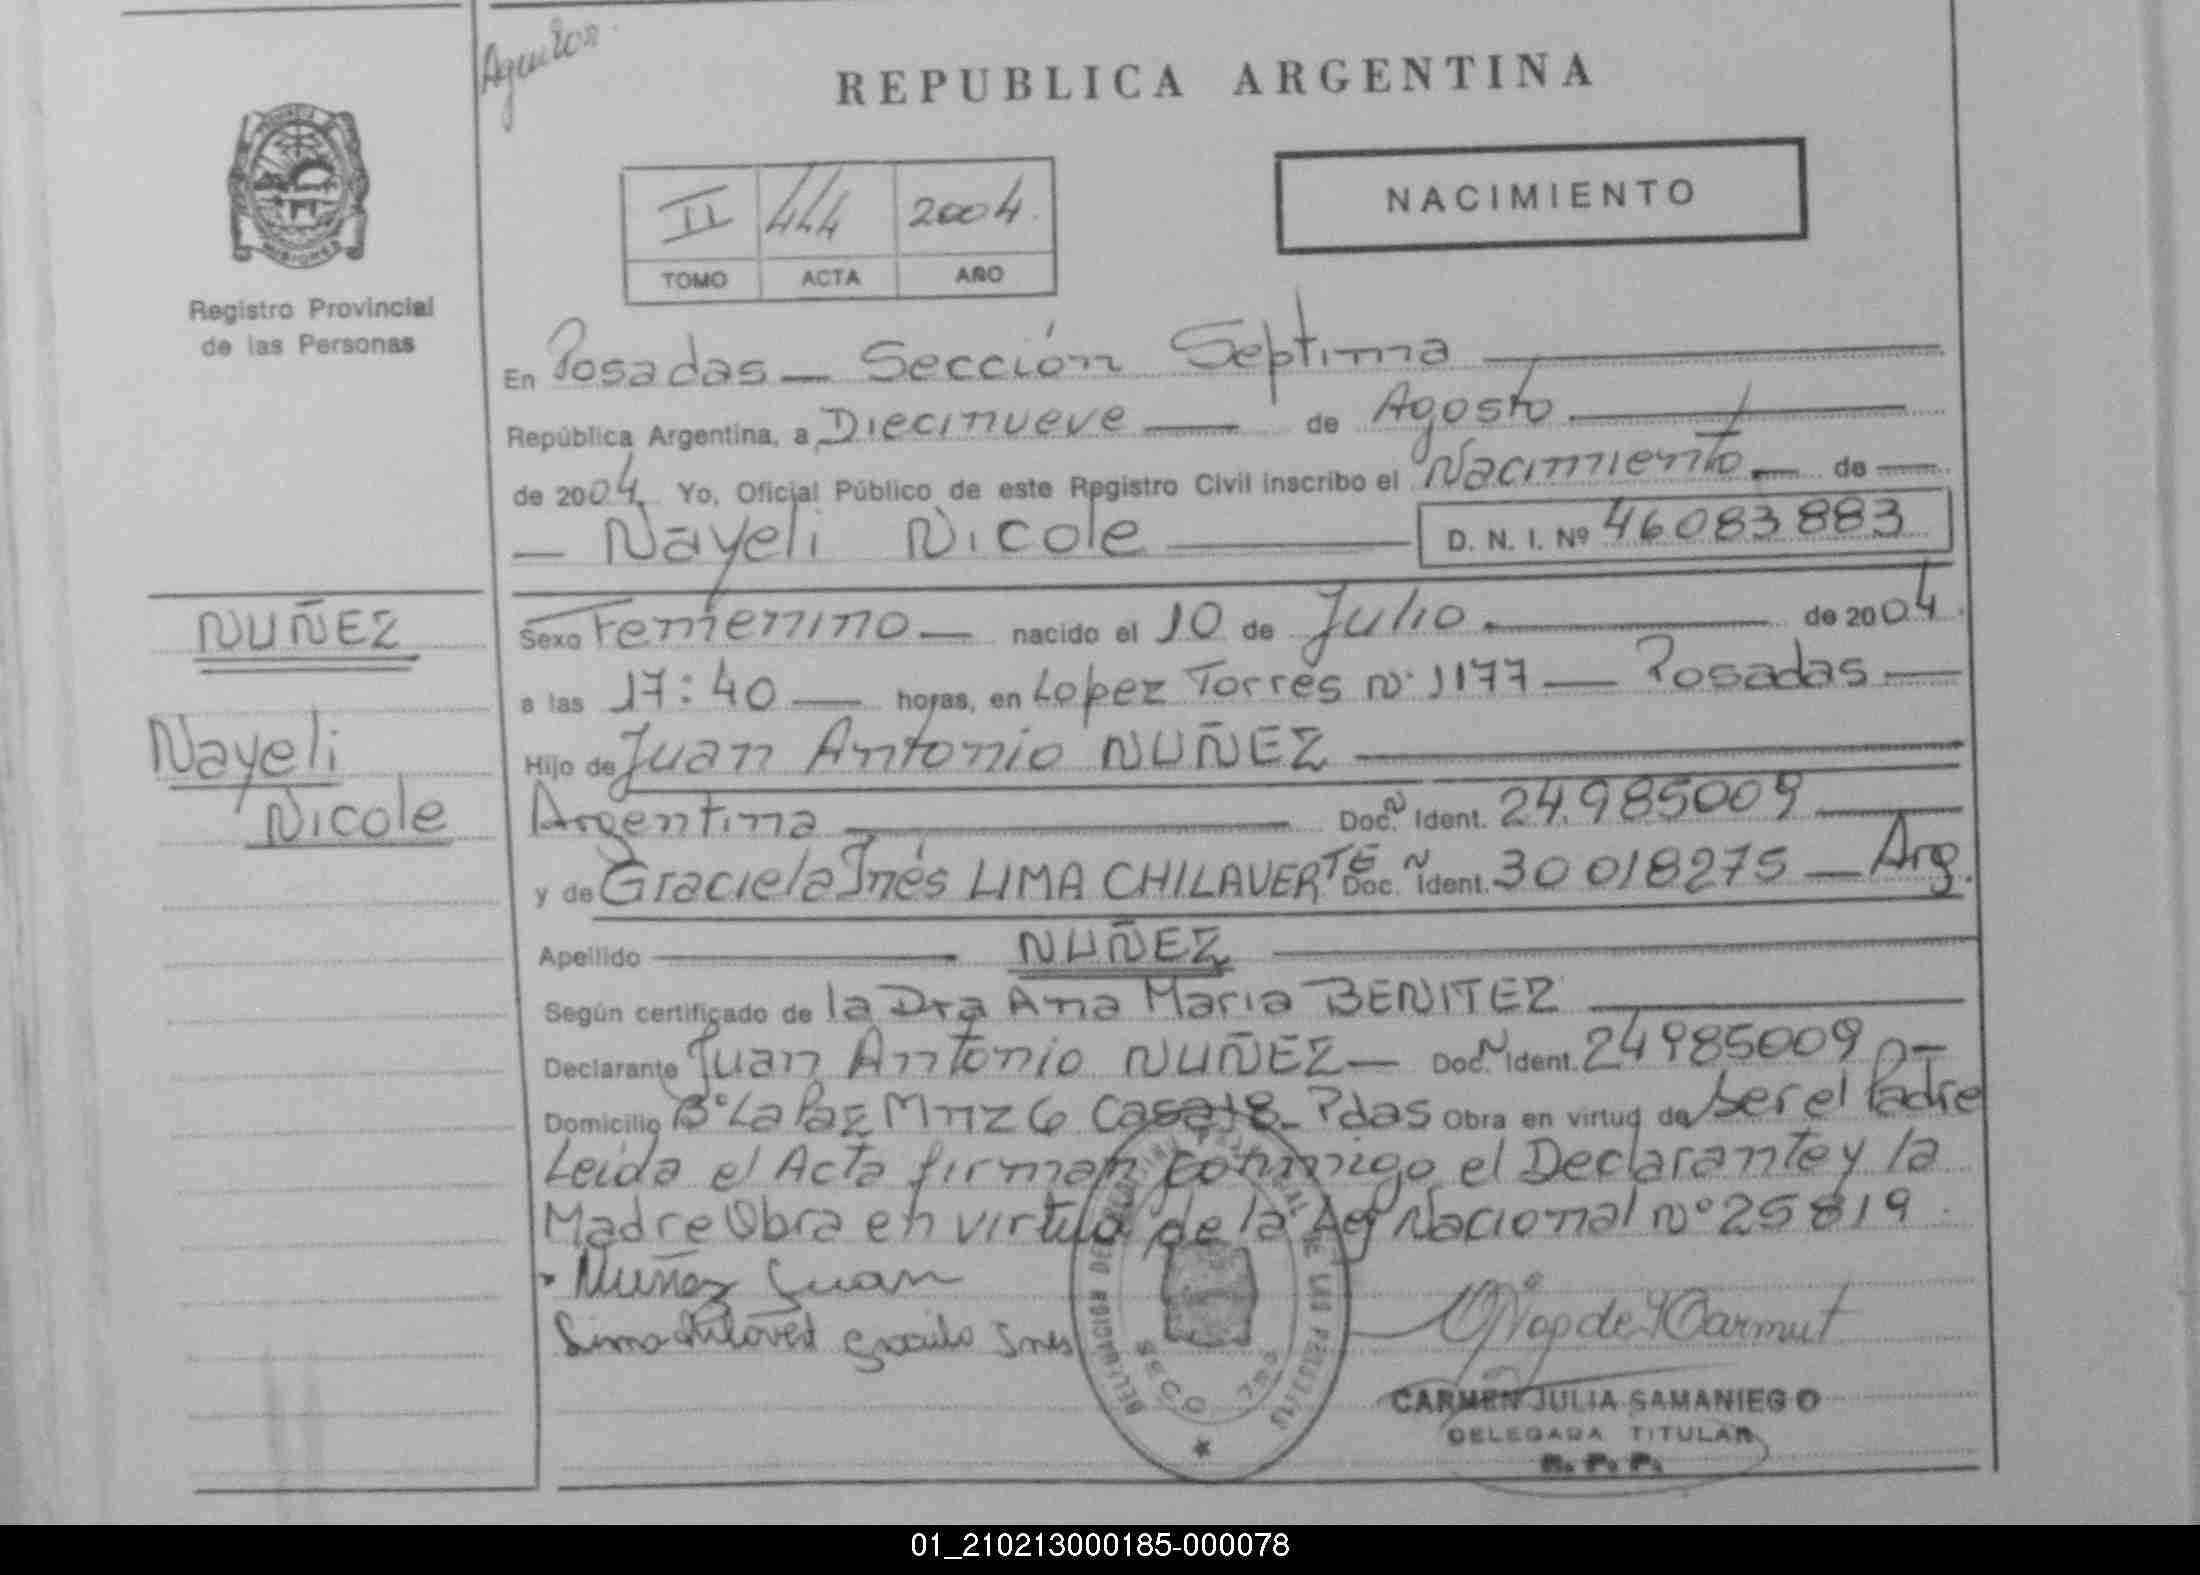 REPUBLICA ARGENTINA
NACIMIENTO
II 444 2004.
TOMO ACTA AÑO
MISIONES
Registro Provincial
de las Personas
En Posadas — Sección Septima
República Argentina, a Diecinueve — de Agosto
de 2004 Yo, Oficial Público de este Registro Civil inscribo el Nacimiento — de —
— Nayeli Nicole — D. N. I. Nº 46083883
NUÑEZ
Nayeli
Nicole
Sexo Femenino — nacido el 10 de Julio — de 2004.
a las 17:40 — horas, en Lopez Torres Nº 1177 — Posadas —
Hijo de Juan Antonio NUÑEZ —
Argentina — Doc. N Ident. 24.985009 —
y de Graciela Inés LIMA CHILAVERTE Doc. N Ident. 30 018275 — Arg.
Apellido — NUÑEZ —
Según certificado de la Dra Ana Maria BENITEZ —
Declarante Juan Antonio NUÑEZ — Doc. N Ident. 24985009
Domicilio Bº La Paz Mnz 6 Casa 18 - Pdas Obra en virtud de ser el Padre
Leida el Acta firman conmigo el Declarante y la
Madre Obra en virtud de la Ley Nacional nº 25819.
Nuñez Juan
Lima Chilavert Graciela Ines
CARMEN JULIA SAMANIEGO
DELEGADA TITULAR
R. P. P.
01_210213000185-000078